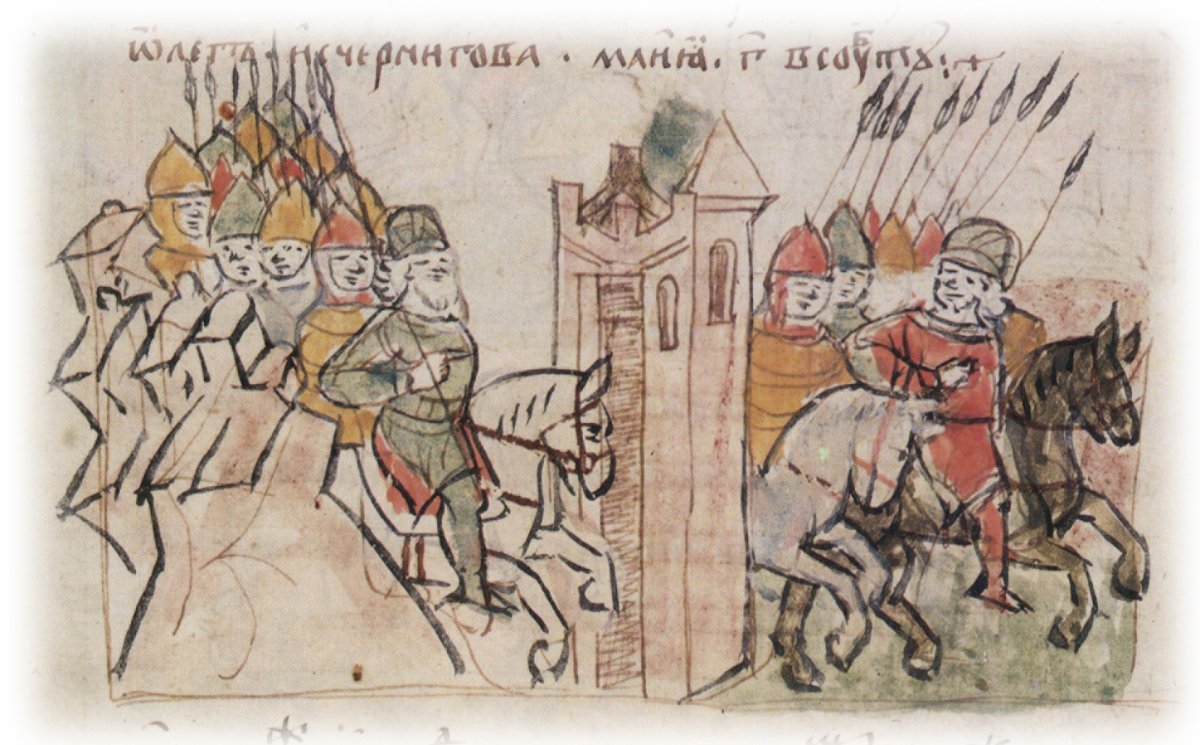 Ѡ҆легъ · исчернигова · маиꙗ · г҃ всоуⷠтꙋ :+